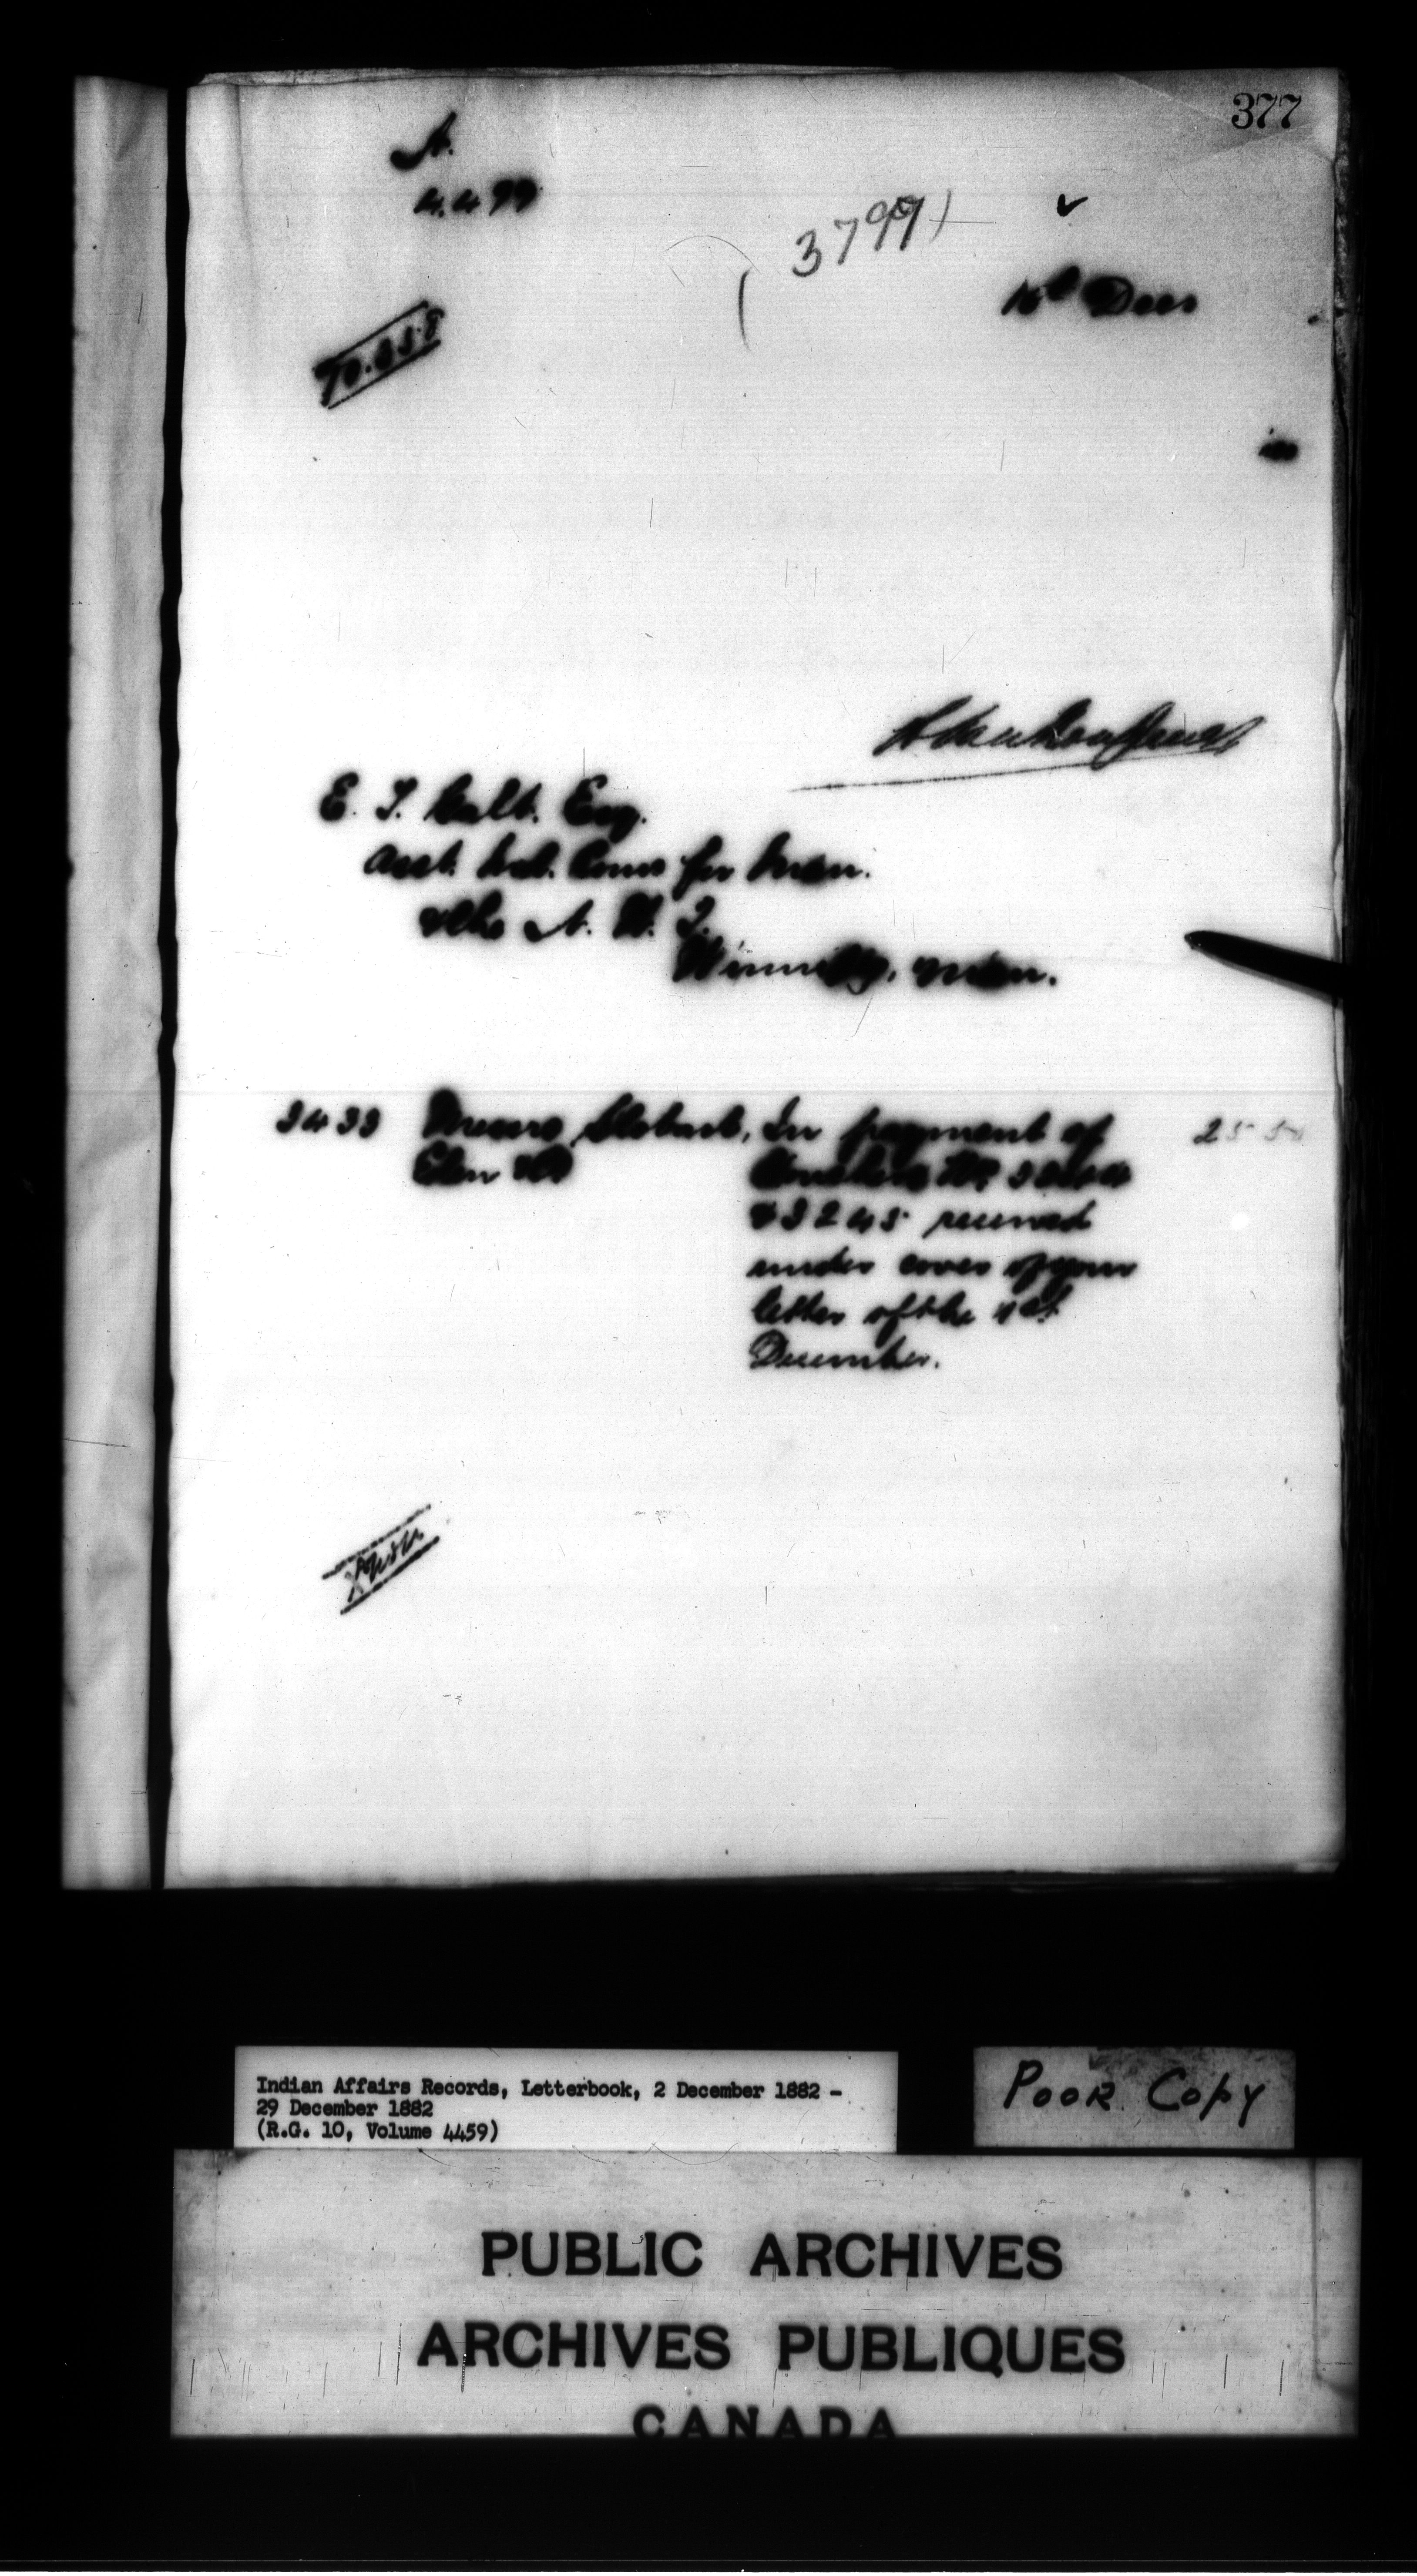 377
A.
4499
3799
16th Decr
E. T. Galt. Esq.
Asst. Ind. Coms for Man.
& the N. W. T.
Winnipeg, Man.
3433 Messrs Stobart, In payment of 25 50
Eden & Co
& 3245 received
under cover of your
letter of the 1st
December.
Indian Affairs Records, Letterbook, 2 December 1882 -
29 December 1882
(R.G. 10, Volume 4459)
POOR COPY
PUBLIC ARCHIVES
ARCHIVES PUBLIQUES
CANADA